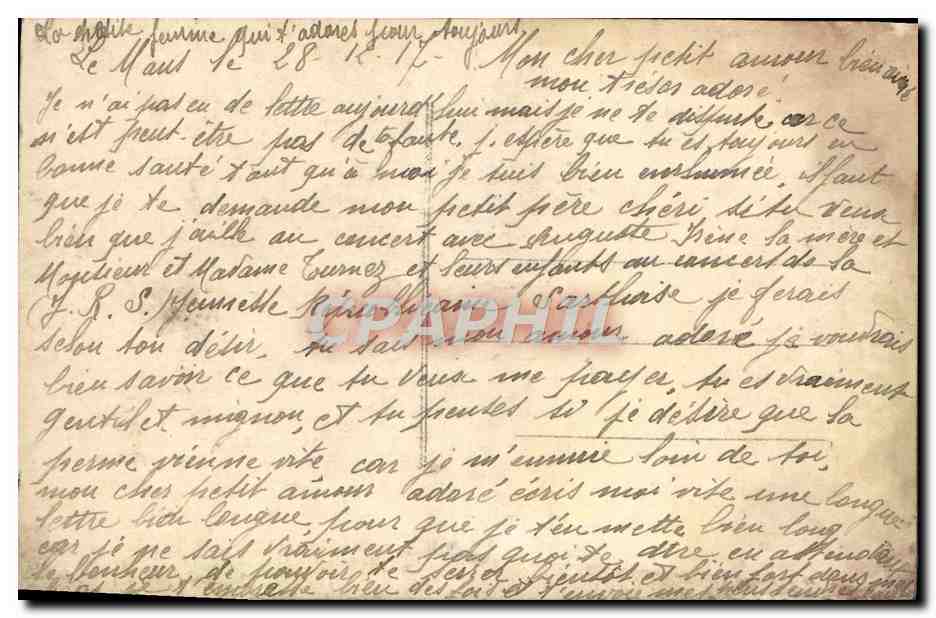 petite femme qui t'adores pour toujours
Le Mans le 28-12-17- Mon cher petit amour bien aimé
mon trésor adoré.
Je n'ai pas eu de lettre aujourd'hui mais je ne te dispute car ce
n'est peut-être pas de ta faute. j'espère que tu es toujours en
bonne santé tant qu'à moi je suis bien enrhumée, il faut
que je te demande mon petit père chéri, si tu veux
bien que j'aille au concert avec Auguste Irène sa mère et
Monsieur et Madame Tournez et leurs enfants au concert de la
J. R. S. Jeunesse Républicaine Sarthoise je ferais
selon ton désir, tu sais mon amour adoré je voudrais
bien savoir ce que tu veux me payer, tu es vraiment
gentil et mignon, et tu penses si je désire que la
perme vienne vite car je m'ennuie loin de toi,
mon cher petit amour adoré écris moi vite une longue
lettre bien longue, pour que je t'en mette bien long
car je ne sais vraiment pas quoi te dire en attendant
le bonheur de pouvoir te serrer bientôt et bien fort dans mes
bien des fois et t'envoie mes
CPAPHIL